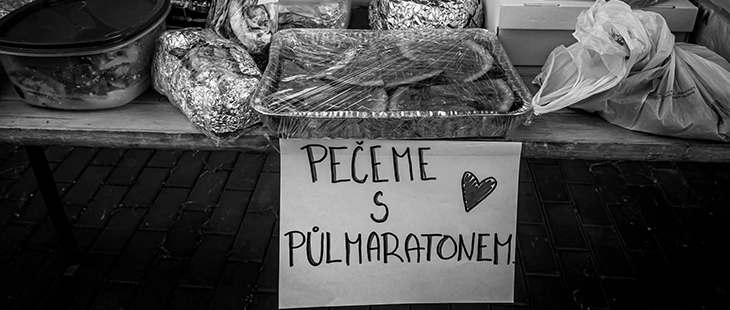 PEČEME
S
PŮLMARATONEM.